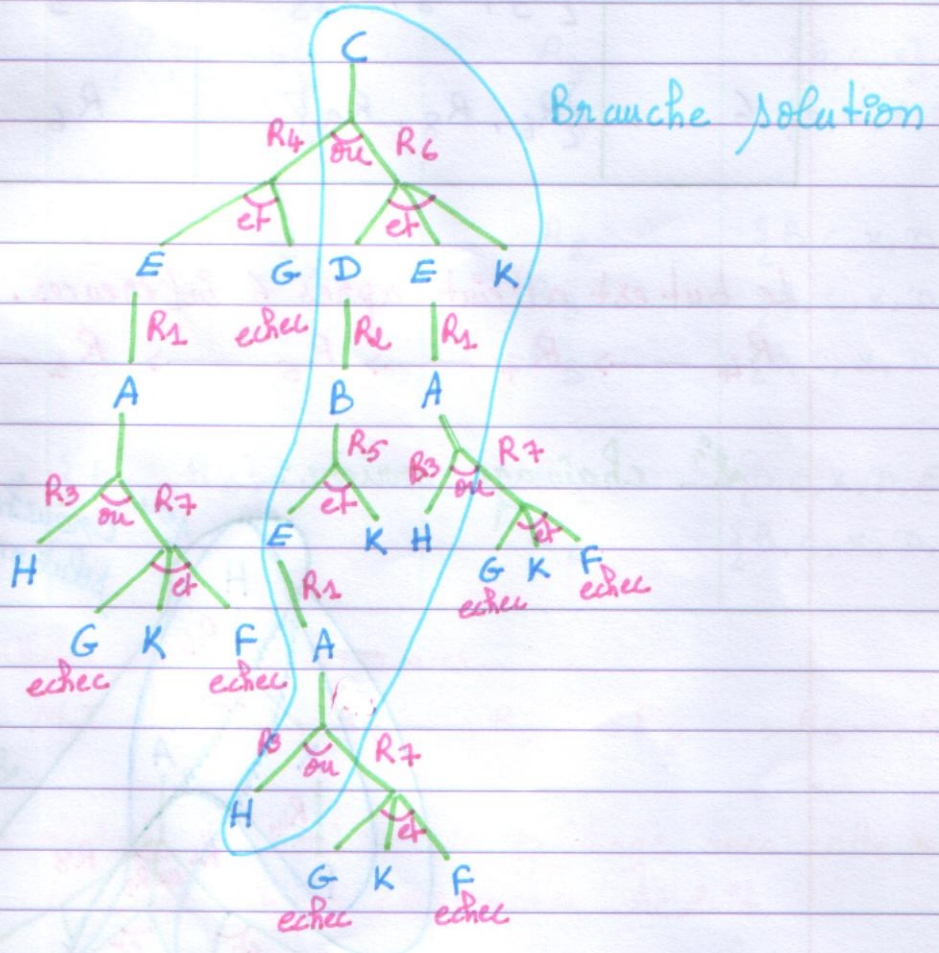 C
Brauche solution
R4 ou R6
et et
E G D E K
R1 echec R2 R1
A B A
R5
R3 ou R7 et B3 ou R7
H et E K H et
R1 G K F
echec echec
G K F A
echec echec
R3 ou R7
H et
G K F
echec echec